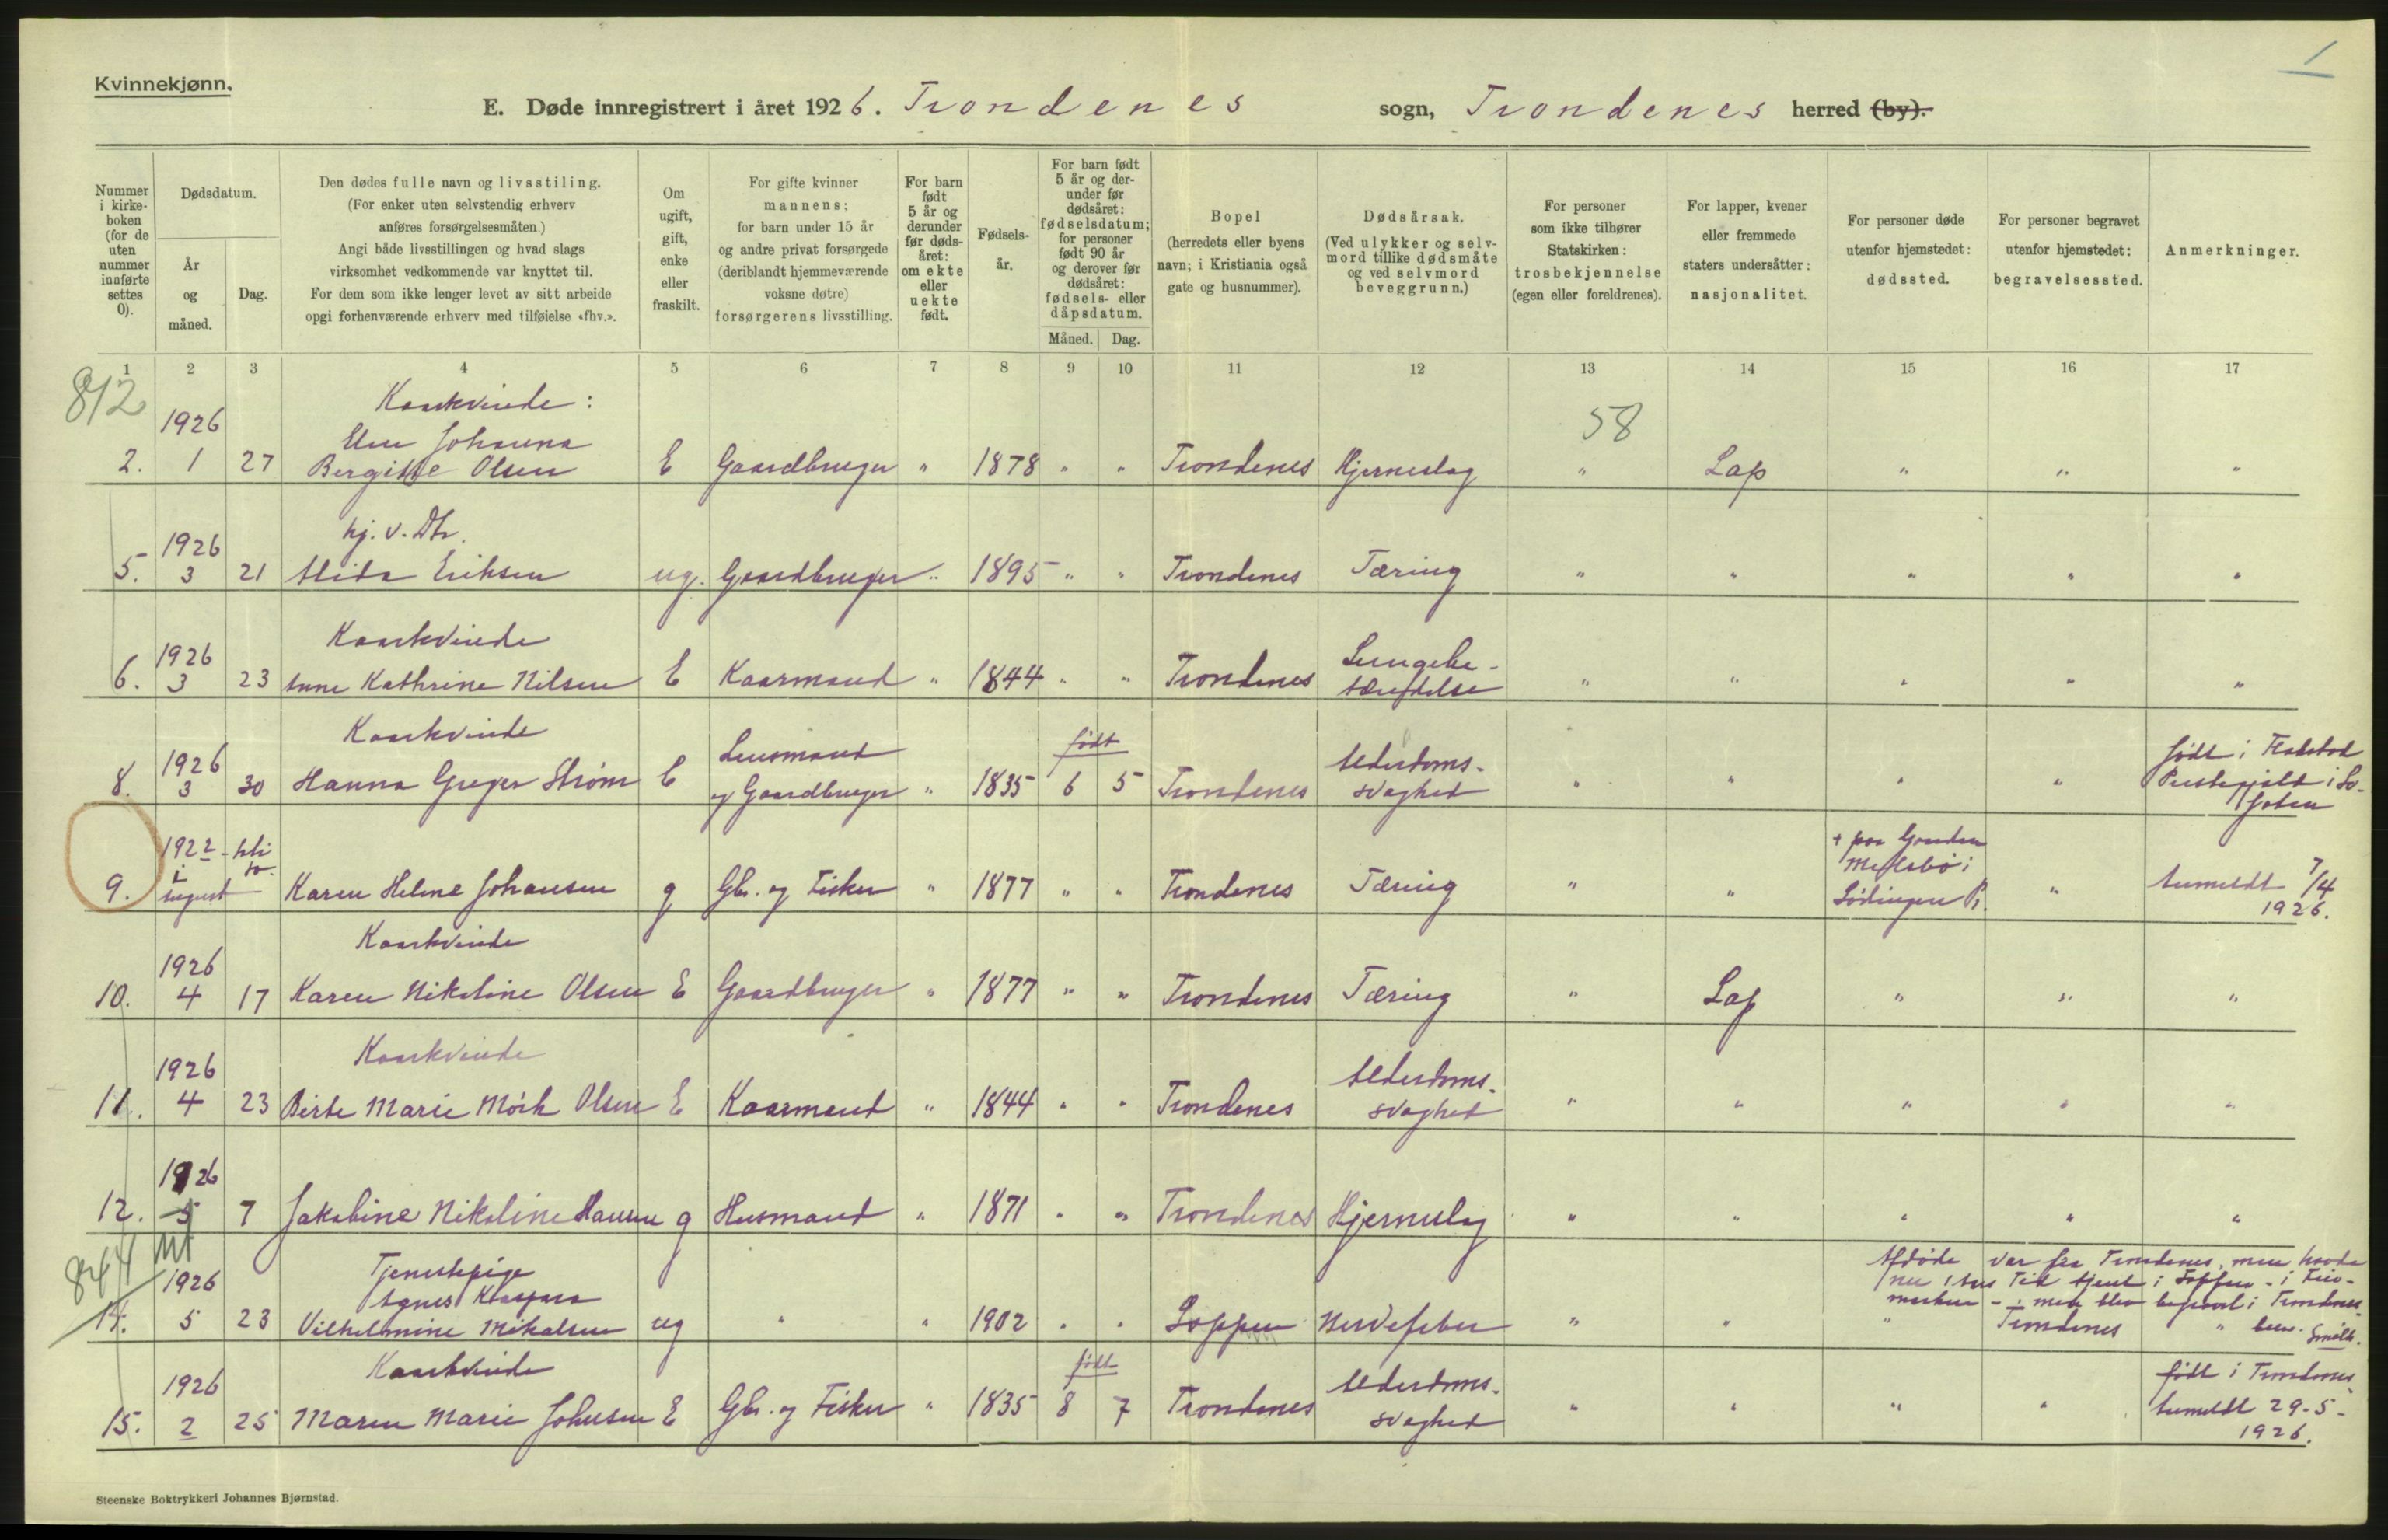 1
Kvinnekjønn.
E. Døde innregistrert i året 1926. Trondenes sogn, Trondenes herred (by).
Nummer i kirkeboken (for de uten nummer innførte settes 0).
Dødsdatum.
År og måned.
Dag.
Den dødes fulle navn og livsstiling.
(For enker uten selvstendig erhverv
anføres forsørgelsesmåten.)
Angi både livsstillingen og hvad slags
virksomhet vedkommende var knyttet til.
For dem som ikke lenger levet av sitt arbeide
opgi forhenværende erhverv med tilføielse «fhv.».
Om
ugift,
gift,
enke
eller
fraskilt.
For gifte kvinner
mannens;
for barn under 15 år
og andre privat forsørgede
(deriblandt hjemmeværende
voksne døtre)
forsørgerens livsstilling.
For barn
født
5 år og
derunder
før døds-
året:
om ekte
eller
uekte
født.
Fødsels-
år.
For barn født
5 år og der-
under før
dødsåret:
fødselsdatum;
for personer
født 90 år
og derover før
dødsåret:
fødsels- eller
dåpsdatum.
Måned. Dag.
Bopel
(herredets eller byens
navn; i Kristiania også
gate og husnummer).
Dødsårsak.
(Ved ulykker og selv-
mord tillike dødsmåte
og ved selvmord
beveggrunn.)
For personer
som ikke tilhører
Statskirken:
trosbekjennelse
(egen eller foreldrenes).
For lapper, kvener
eller fremmede
staters undersåtter:
nasjonalitet.
For personer døde
utenfor hjemstedet:
dødssted.
For personer begravet
utenfor hjemstedet:
begravelsessted.
Anmerkninger.
1 2 3 4 5 6 7 8 9 10 11 12 13 14 15 16 17
812
Kaarkvinde:
1926
58
Johanna
2. 1 27 Bergitte Olsen E Gaardbruger " 1878 " " Trondenes Hjerneslag " Lap " " "
hj. v. Dtr.
1926
5. 3 21 Alida Eriksen ug. Gaardbruger " 1895 " " Trondenes Tæring " " " " "
Kaarkvinde
1926
Lungebe-
6. 3 23 Anne Kathrine Nilsen E Kaarmand " 1844 " " Trondenes tændelse " " " " "
Kaarkvinde
1926 Lensmand født Alderdoms- født i Flakstad
8. 3 30 Hanna Greger Strøm E og Gaardbruger " 1835 6 5 Trondenes svaghed " " " " Prestegjeld i Lo-
foten
1922
i
+ paa Gaarden
9. August Karen Helme Johansen g Gbr. og Fisker " 1877 " " Trondenes Tæring " " Lødingen P. " Anmeldt 7/4
1926.
Kaarkvinde
1926
10. 4 17 Karen Nikoline Olsen E Gaardbruger " 1877 " " Trondenes Tæring " Lap " " "
Kaarkvinde
1926 Alderdoms-
11. 4 23 Birte Marie Mörk Olsen E Kaarmand " 1844 " " Trondenes svaghed " " " " "
1926
12. 5 7 Jakobine Nikoline Hansen g Husmand " 1871 " " Trondenes Hjerneslag " " " " "
844
Tjenestepige
Afdøde var fra Trondenes, men havde
1926 Agnes Kaspara
14. 5 23 Vilhelmine Mikalsen ug " " 1902 " " Loppen Nervefeber " " " Trondenes "
men blev begravet i Trondenes
Kaarkvinde
1926 født Alderdoms- født i Trondenes
15. 2 25 Maren Marie Johnsen E Gbr. og Fisker " 1835 8 7 Trondenes svaghed " " " " Anmeldt 29-5-
1926.
Steenske Boktrykkeri Johannes Bjørnstad.